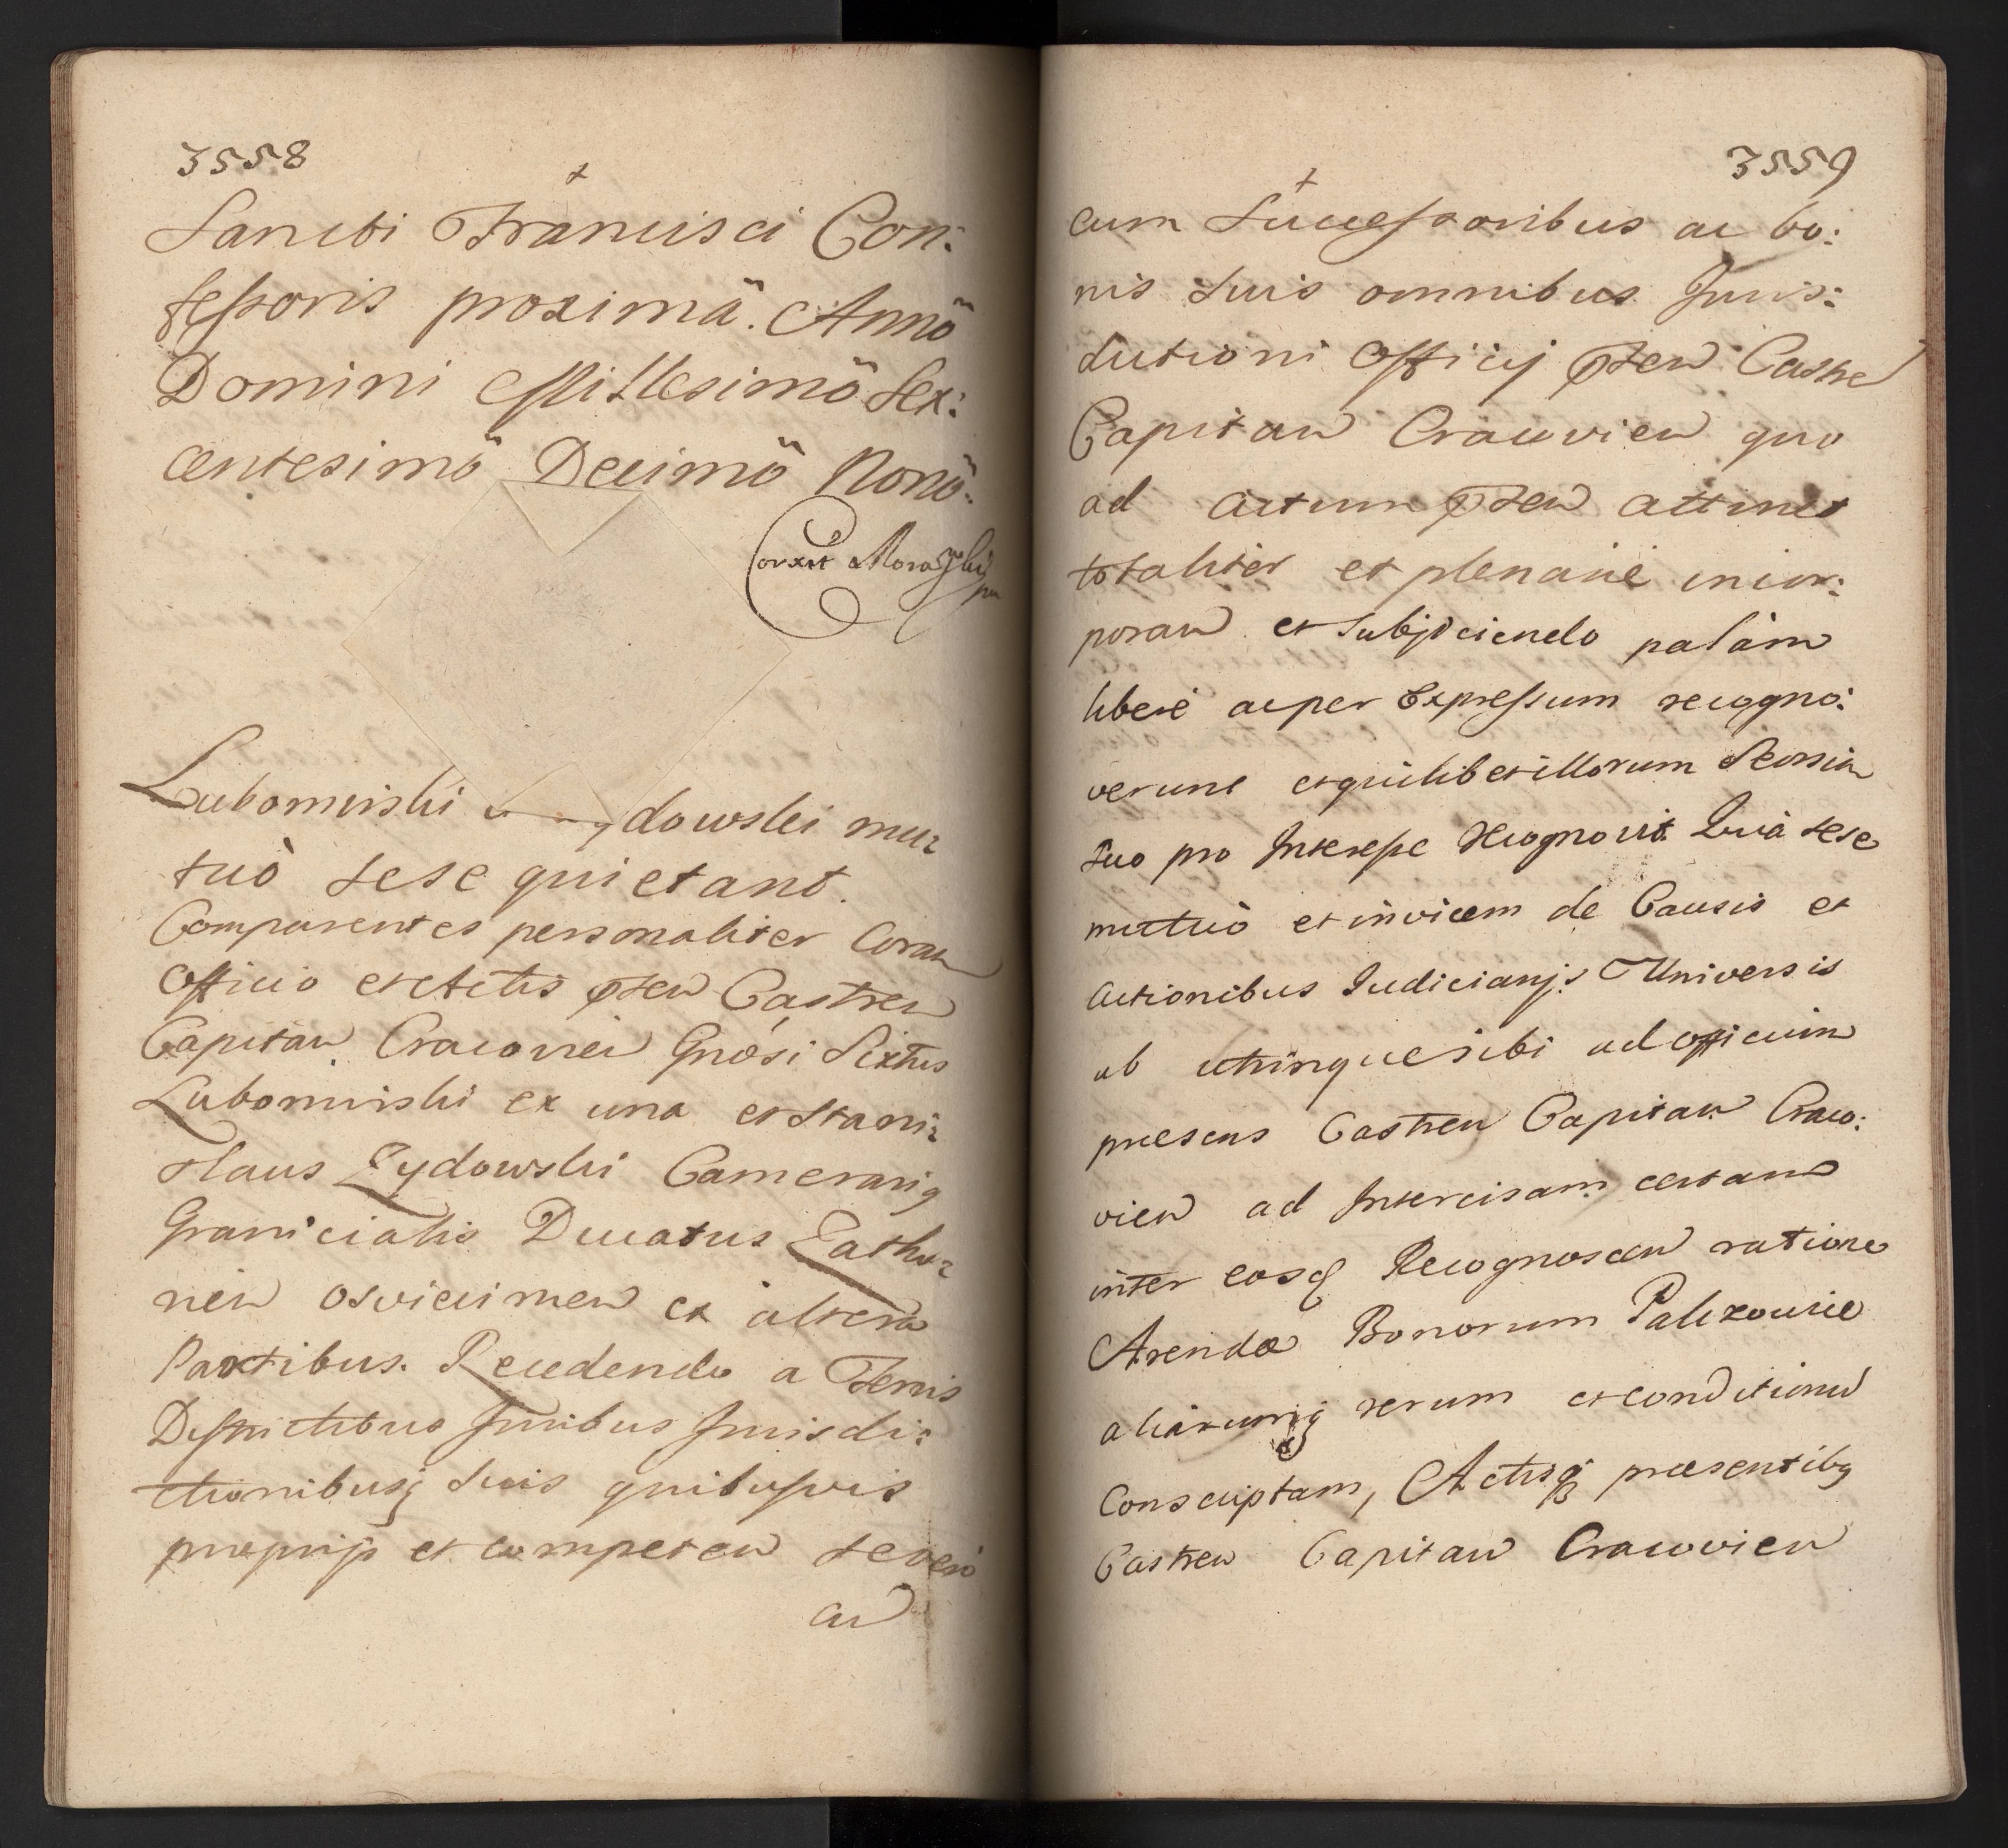 3558
Sancti Francisci Con:
fessoris proximâ. Annô
Domini Millesimô Sex:
centesimô Decimô Nonô.
Corexit Morayski
Lubomirski dowski mu:
tuò sese quietant.
Comparentes personaliter Coram
Officio et Actis pñten Castren
Capitan Cracovien Gnosi Sixtus
Lubomirski ex una et Stani:
slaus Zydowski Camerariq
Granicialis Ducatus Zatho:
rien Osviecimen ex altera
Partibus. Recedendo a Terris
Districtibus Juribus Jurisdi:
ctionibusq suis quibusvis
proprijs et competen seseq
cu
3559
cum Successoribus ac bo:
nis suis omnibus Juris:
dictioni Officij pñten Castre
Capitan Cracovien quo
ad actum pñten attinet
totaliter et plenariè incor:
poran et subjiciendo palàm
liberè ac per Expressum recogno:
verunt et quilibet illorum Seorsim
suo pro Interesse recognovit Quià sese
mutuò et invicem de Causis et
Actionibus Judiciarijs Universis
ab utrinque sibi ad officium
præsens Castren Capitan Craco:
vien ad Intercisam certam
inter eosq Recognoscen ratione
Arendæ Bonorum Palizowie
aliàrumq rerum et conditionu
Conscriptam, Actisq præsentibq
Castren Capitan Cracovien